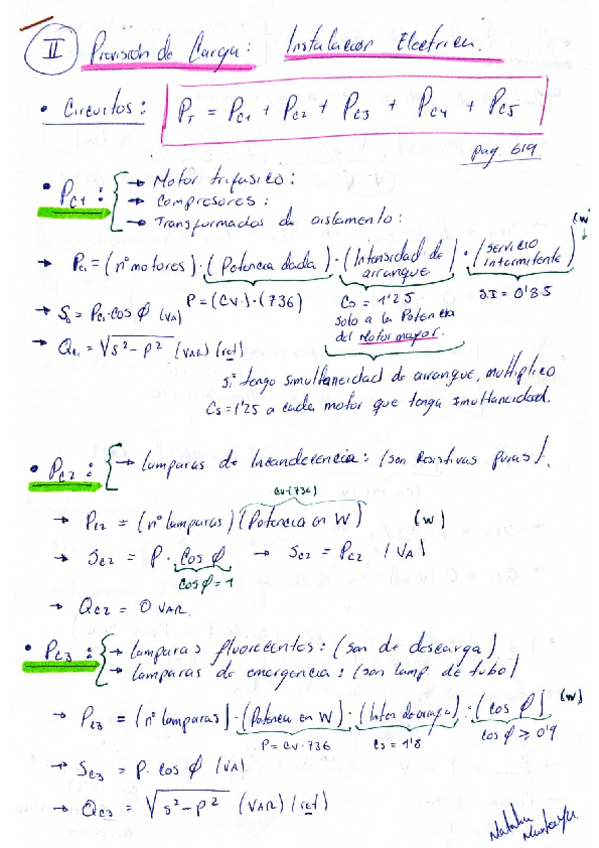 II Previsión de Carga: Instalación Electrica.
• Circuitos: P_T = P_C1 + P_C2 + P_C3 + P_C4 + P_C5
pag. 619
• P_C1: → Motor trifasico:
→ Compresores:
→ Transformados de aislamento:
(W)
→ P_C1 = (nº motores) · (Potencia dada) · (Intensidad de arranque) · (servicio intermitente)
P = (CV) · (736) Cs = 1'25 S.I = 0'85
solo a la Potencia
del Motor mayor.
→ S_C1 = P_C1 · cos φ (VA)
→ Q_C1 = √S²-P² (VAR) (ret)
si tengo simultaneidad de arranque, multiplico
Cs = 1'25 a cada motor que tenga simultaneidad.
• P_C2: → lamparas de Incandecencia: (son Resistivas puras).
CV·(736)
→ P_C2 = (nº lamparas) (Potencia en W) (W)
→ S_C2 = P · cos φ → S_C2 = P_C2 (VA)
cos φ = 1
→ Q_C2 = 0 VAR.
• P_C3: → lamparas fluorecentes: (son de descarga)
→ lamparas de emergencia: (son lamp. de tubo)
→ P_C3 = (nº lamparas) · (Potencia en W) · (Inten de arranq) · (cos φ) (W)
P = CV · 736 Cs = 1'8 cos φ ≥ 0'9
→ S_C3 = P · cos φ (VA)
→ Q_C3 = √S²-P² (VAR) (ret)